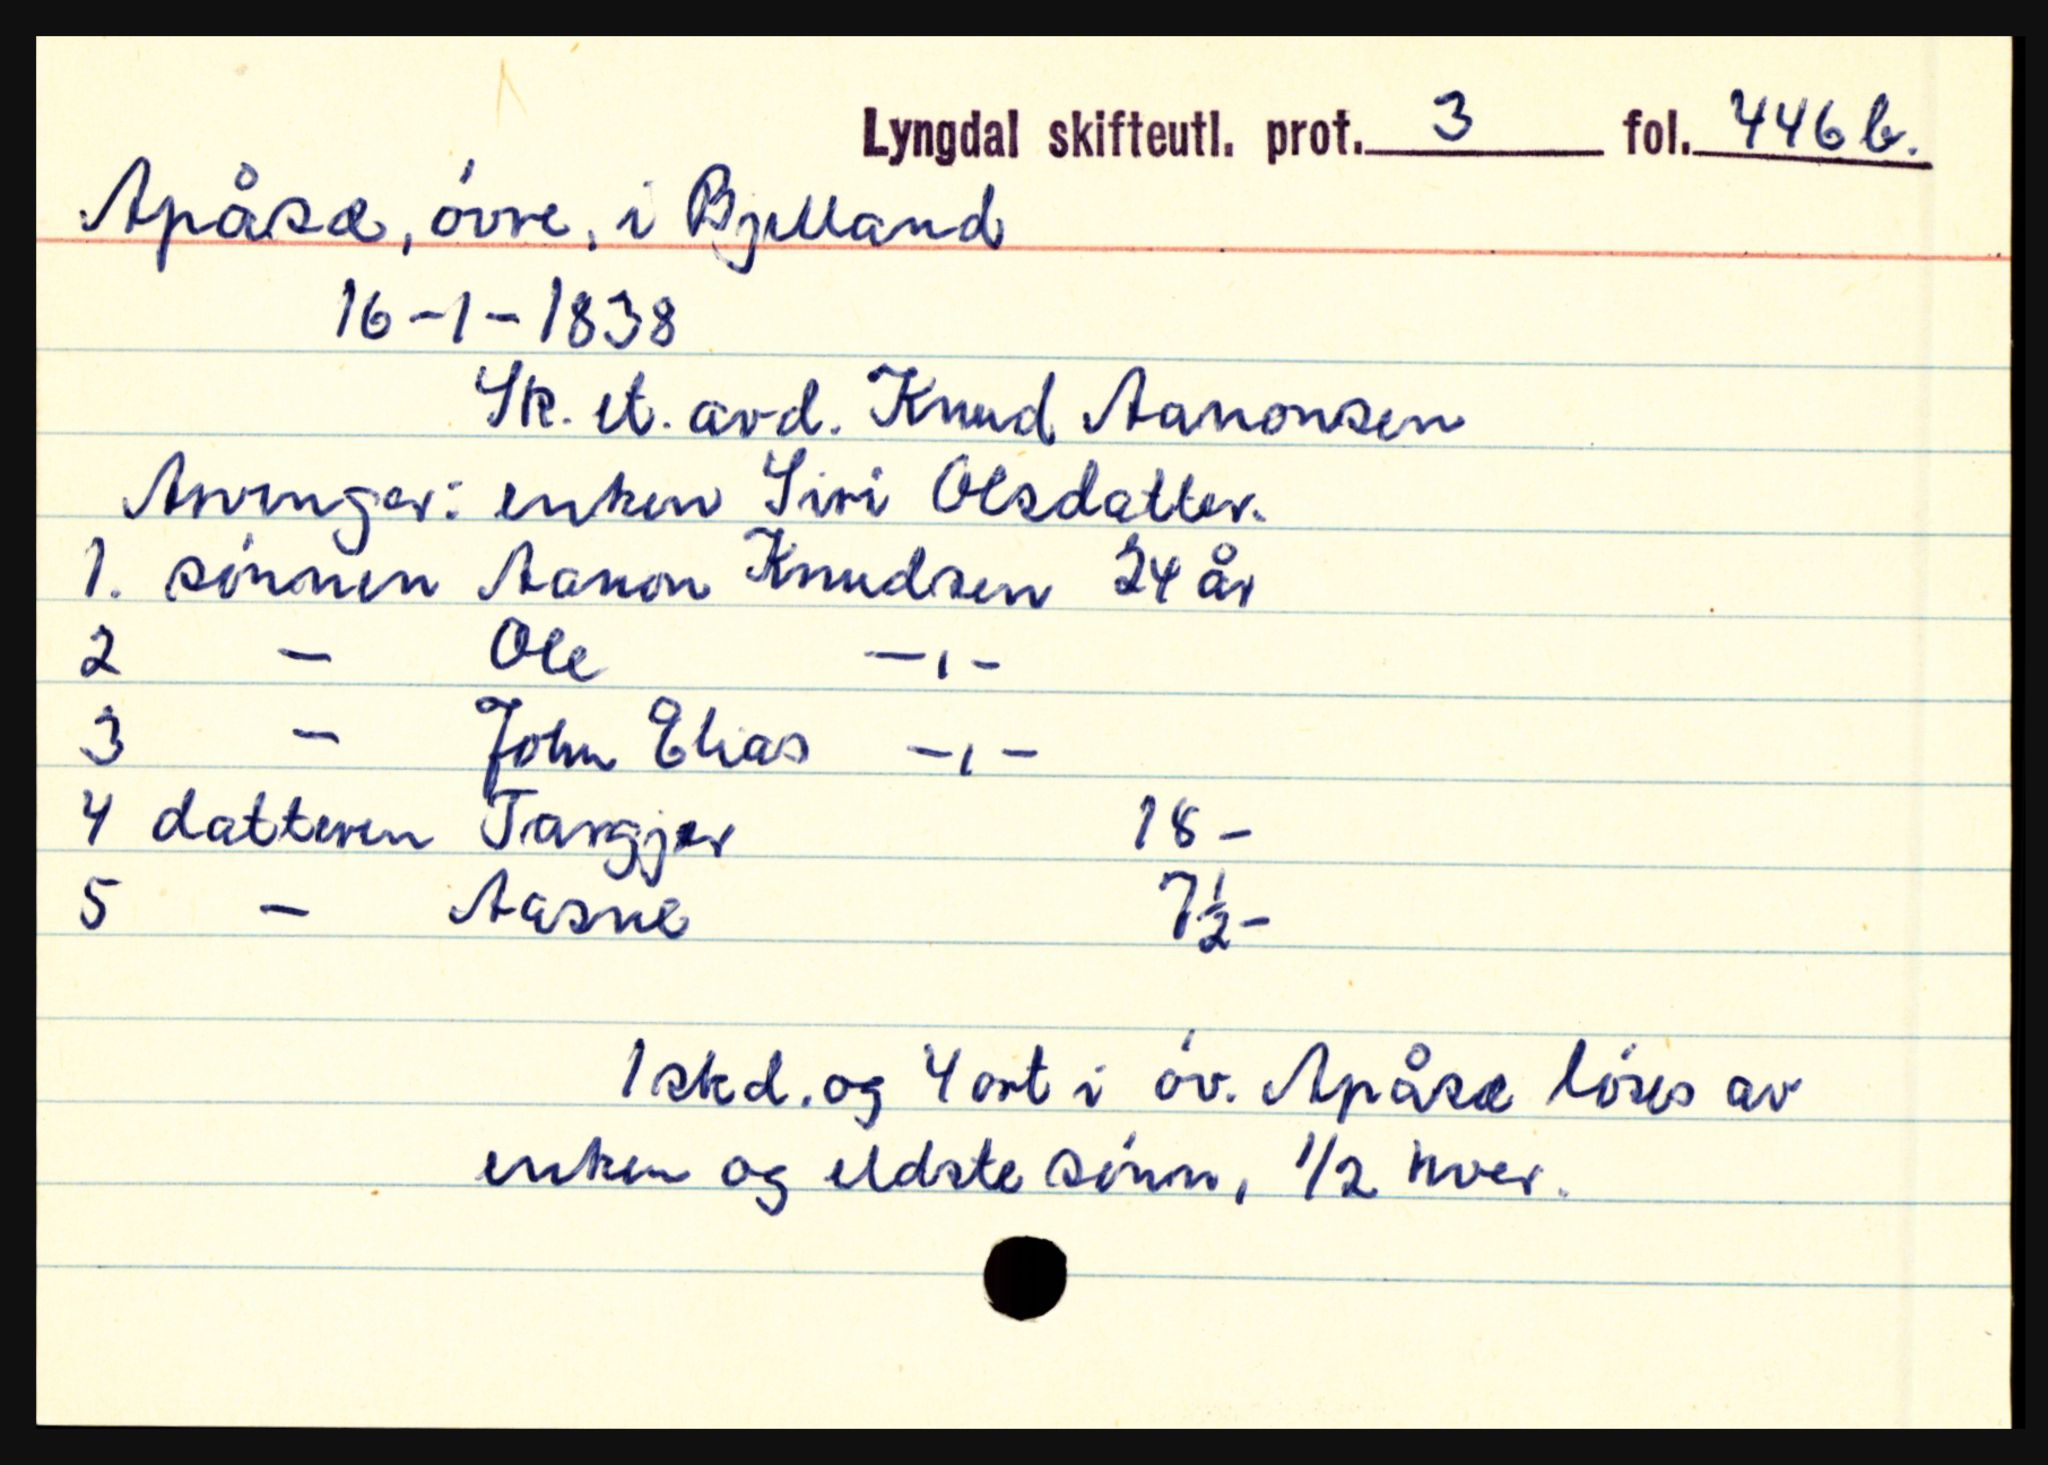 Lyngdal skifteutl. prot. 3 fol. 446 b.
Apåsæ, óvre, i Bjelland
16-1-1838
Sk. et. avd. Knud Aanonsen
Arvinger: enken Siri Olsdatter.
1. sónnen Aanon Knudsen 24 år
2 - Ole -,-
3 - John Elias -,-
4 datteren Targjer 18 -
5 - Aasne 7½ -
1 skd. og 4 ort i óv. Apåsæ lóses av
enken og eldste sónn, 1/2 hver.